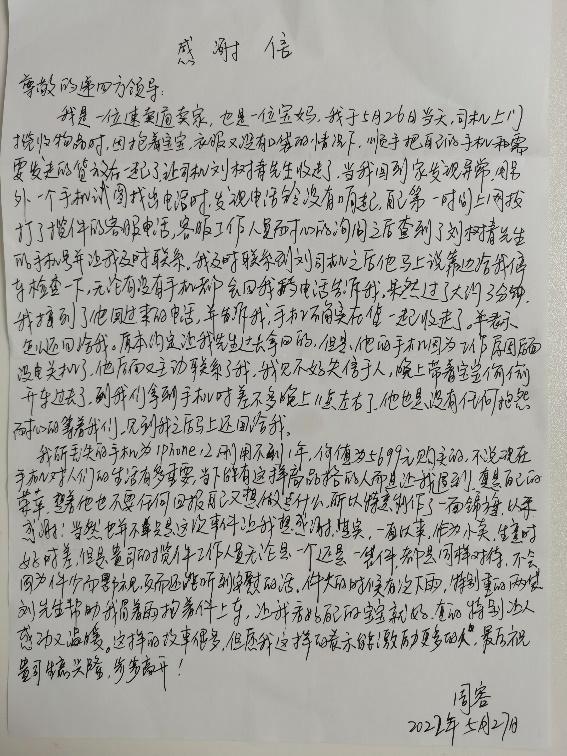 感谢信
尊敬的递四方领导:
我是一位速卖通卖家,也是一位宝妈,我于5月26日当天,司机上门
揽收物品时,因抱着宝宝,衣服又没有口袋的情况下,顺手把自己的手机和需
要发走的货放在一起了让司机刘树青先生收走了。当我回到家发现异常,用另
外一个手机试图找出电话时,发现电话铃没有响起,自己第一时间上网拨
打了揽件的客服电话,客服工作人员耐心的询问之后查到了刘树青先生
的手机号并让我及时联系。我及时联系到刘司机之后他马上说靠边给我停
车检查一下,无论有没有手机都会回我电话告诉我。果然过了大约3分钟
我接到了他回过来的电话,并告诉我,手机不确实在货一起收走了。并表示
送还回给我。原本约定让我先生过去拿回的,但是,他的手机因为工作原因后面
没电关机了,他后面又主动联系了我,我又不好失信于人,晚上带着宝宝
开车过去了,到我们拿到手机时差不多晚上11点左右了,他也是没有任何抱怨
耐心的等着我们,见到我之后马上还回给我。
我所丢失的手机为iphone12刚用不到1年,价值为5699元购买的,不说现在
手机对人们的生活有多重要,当下能有这样高品格的人而是让我遇到,真是自己的
荣幸,想着他也不要任何回报自己又想做些什么,所以特意制作了一面锦旗,以来
感谢!当然也并不单只是这次事件让我想感谢,其实,一直以来,作为小卖,生意时
好时差,但是贵司的揽件工作人员无论是一个还是一售件都是同样对待,不会
因为件少而鄙视,反而还能听到安慰的话。件大的时候有次下雨,特别重的两袋
刘先生帮助我冒着雨抱着件上车,让我看好自己的宝宝就好,真的特别让人
感动又温暖。这样的故事很多,但愿我这样的表示能激励更多的人,最后祝
贵司生意兴隆,步步高升!
周容
2022年5月27日